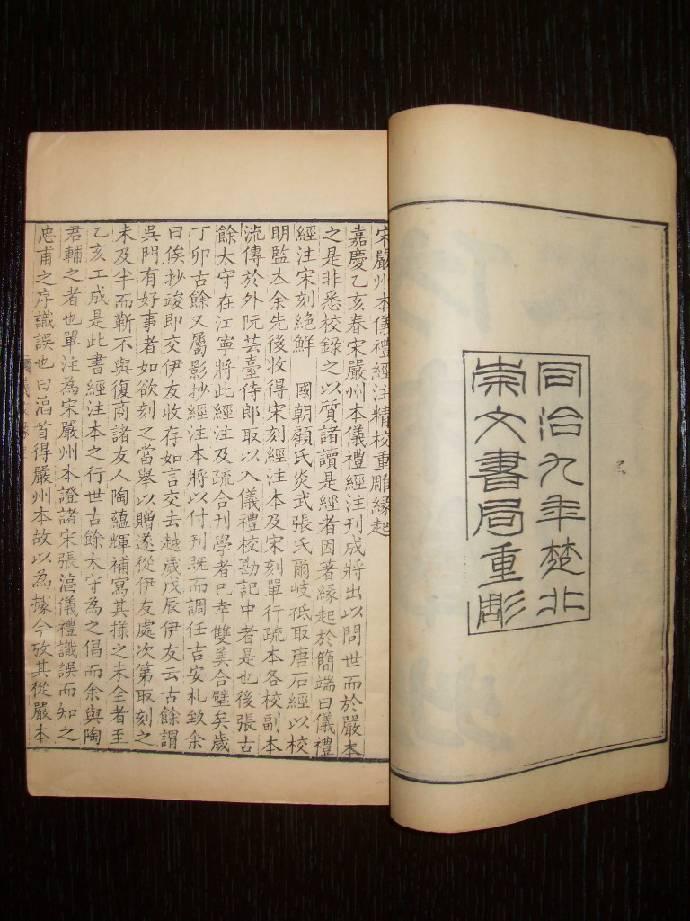 同治九年楚北
崇文書局重彫
宋嚴州本儀禮經注精校重雕緣起
嘉慶乙亥春宋嚴州本儀禮經注刊成將出以問世而於嚴本
之是非悉校錄之以質諸讀是經者因著緣起於簡端曰儀禮
經注宋刻絶鮮 國朝顧氏炎武張氏爾岐祇取唐石經以校
明監本余先後收得宋刻經注本及宋刻單行疏本各校副本
流傳於外阮芸臺侍郎取以入儀禮校勘記中者是也後張古
餘太守在江寧將此經注及疏合刊學者已幸雙美合璧矣歲
丁卯古餘又屬影抄經注本將以付刊既而調任吉安札致余
曰俟抄竣即交伊友收存如言交去越歲戊辰伊友云古餘謂
吳門有好事者如欲刻之當舉以贈遂從伊友處次第取刻之
未及半而靳不與復商諸友人陶蘊輝補寫其㨾之未全者至
乙亥工成是此書經注本之行世古餘太守為之倡而余與陶
君輔之者也單注為宋嚴州本證諸宋張淳儀禮識誤而知之
忠甫之序識誤也曰淳首得嚴州本故以為據今攷其從嚴本